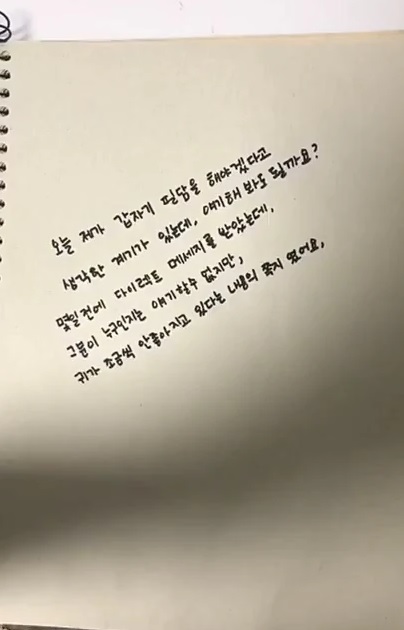 오늘 제가 갑자기 필담을 해야겠다고
생각한 계기가 있는데, 얘기해 봐도 될까요?
몇일전에 다이렉트 메세지를 받았는데,
그분이 누구인지는 얘기할수 없지만,
귀가 조금씩 안좋아지고 있다는 내용의 쪽지 였어요,